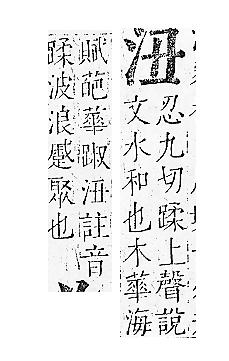 沑
忍九切蹂上聲說
文水和也木華海
賦葩華踧沑註音
蹂波浪蹙聚也